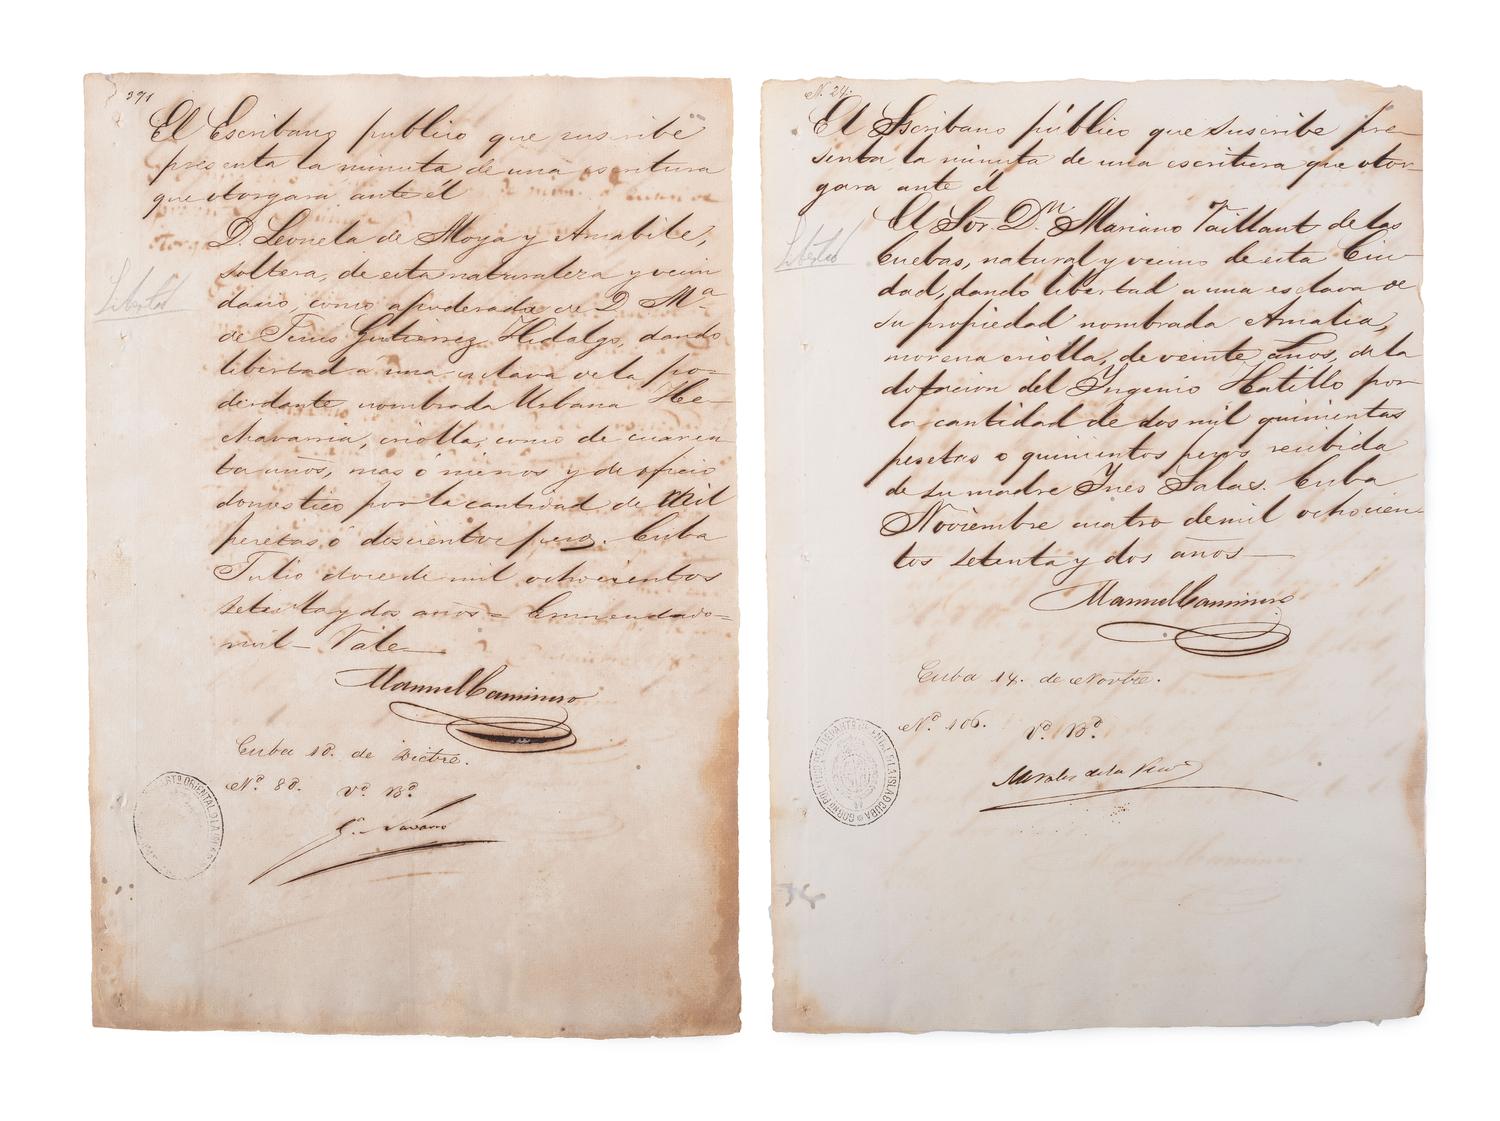 391
El Escribano publico que suscribe
presenta la minuta de una escritura
que otorgará ante él
D. Leonela de Moya y Amabile,
soltera, de esta naturaleza y vecin
dario, como apoderada de D. Ma
de Gutierrez Hidalgo, dando
libertad á una esclava de la po=
derdante nombrada Urbana He-
chavarria, criolla, como de cuaren
ta años, mas ó menos y de oficio
domestico por la cantidad de mil
pesetas ó doscientos pesos. Cuba
Julio doce de mil ochocientos
setenta y dos años = Enmendado=
mil - Vale
Manuel Caminero
Cuba 10. de Dictre.
No. 80. Vo. Bo.
Navarro
Libertad
N. 24.
El Escribano público que suscribe pre-
senta la minuta de una escritura que otor-
gara ante él
El Sor. Dn. Mariano Vaillant de las
Cuebas, natural y vecino de esta Ciu-
dad, dando libertad a una esclava de
su propiedad nombrada Amalia,
morena criolla, de veinte años, de la
dotacion del Yngenio Hatillo por
la cantidad de dos mil quinientas
pesetas o quinientos pesos recibida
de su madre Ynes Salas. Cuba
Noviembre cuatro de mil ochocien-
tos setenta y dos años
Manuel Caminero
Cuba 14. de Novbre.
No. 106. Vo. Bo.
Morales de la
Libertad
GOBNO POLITICO DEL DEPARTO ORIENTAL D LA ISLA D CUBA